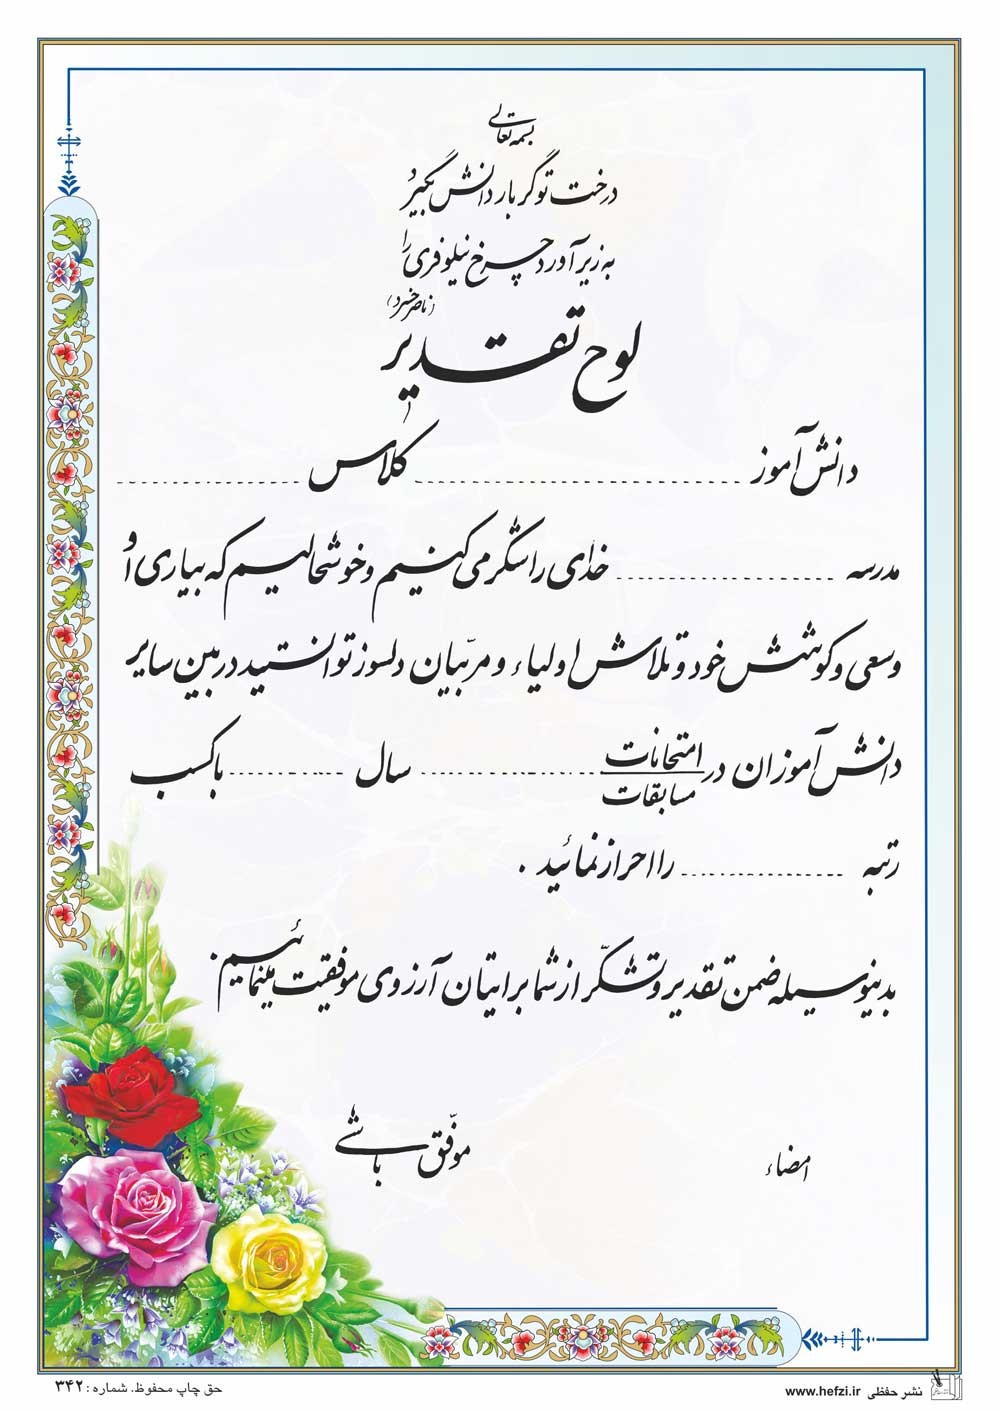 بسمه تعالی
درخت تو گر بار دانش بگیرد
به زیر آورد چرخ نیلوفری را
(ناصر خسرو)
لوح تقدیر
دانش آموز ........................ کلاس ........................
مدرسه ........................ خدای را شکر می کنیم و خوشحالیم که بیاری او
و سعی و کوشش خود و تلاش اولیاء و مربّیان دلسوز توانستید در بین سایر
دانش آموزان در امتحانات ........................ سال ........................ با کسب
مسابقات
رتبه ........................ را احراز نمائید .
بدینوسیله ضمن تقدیر و تشکّر از شما برایتان آرزوی موفقیت مینمائیم.
موفّق باشی
امضاء
نشر حفظی www.hefzi.ir
حق چاپ محفوظ. شماره : ۳۴۲